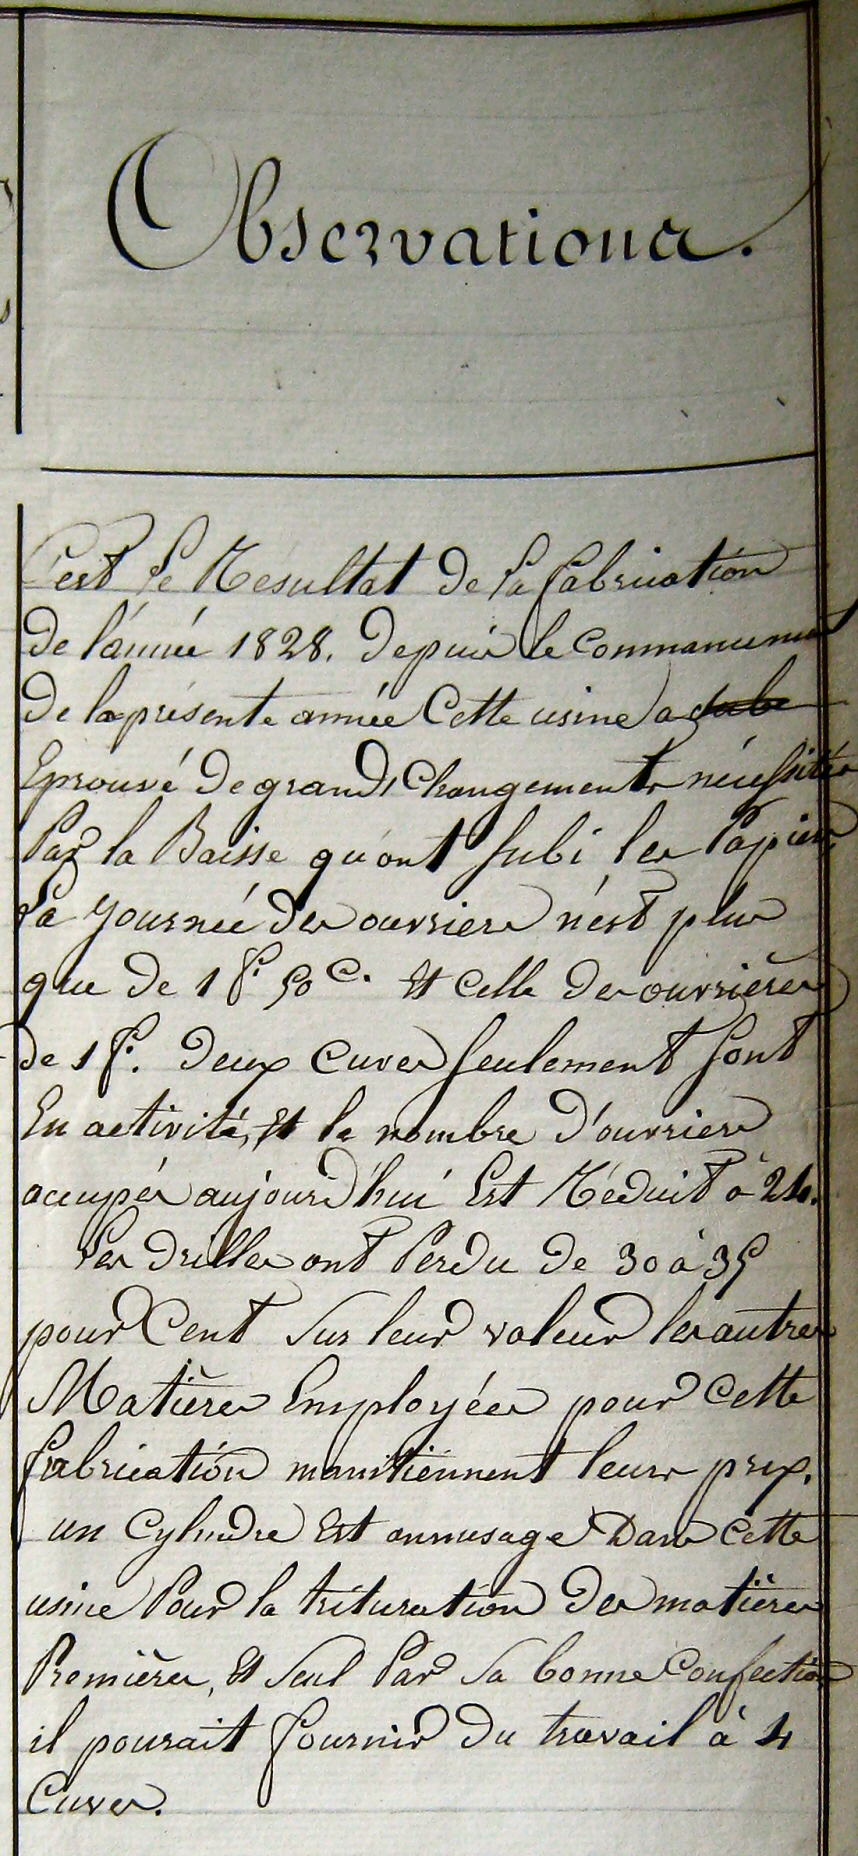 Observations.
C'est le Résultat de la fabrication
de l'année 1828. depuis le commancement
de la présente année Cette usine a
Eprouvé de grands Changements nécessités
Par la Baisse qu'ont subi les Papiers,
La journée des ouvriers n'est plus
que de 1 f. 50 c. Et celle des ouvrières
de 1 f. deux cuves seulement sont
En activité, Et le nombre d'ouvriers
occupés aujourd'hui Est Réduit à 24.
Les drilles ont Perdu de 30 à 35
pour Cent sur leur valeur les autres
Matières Employées pour Cette
fabrication maintiennent leurs prix.
un Cylindre Est en usage Dans cette
usine Pour la trituration des matières
Premières, Et seul Par sa bonne Confection
il pourait fournir du travail à 4
Cuves.